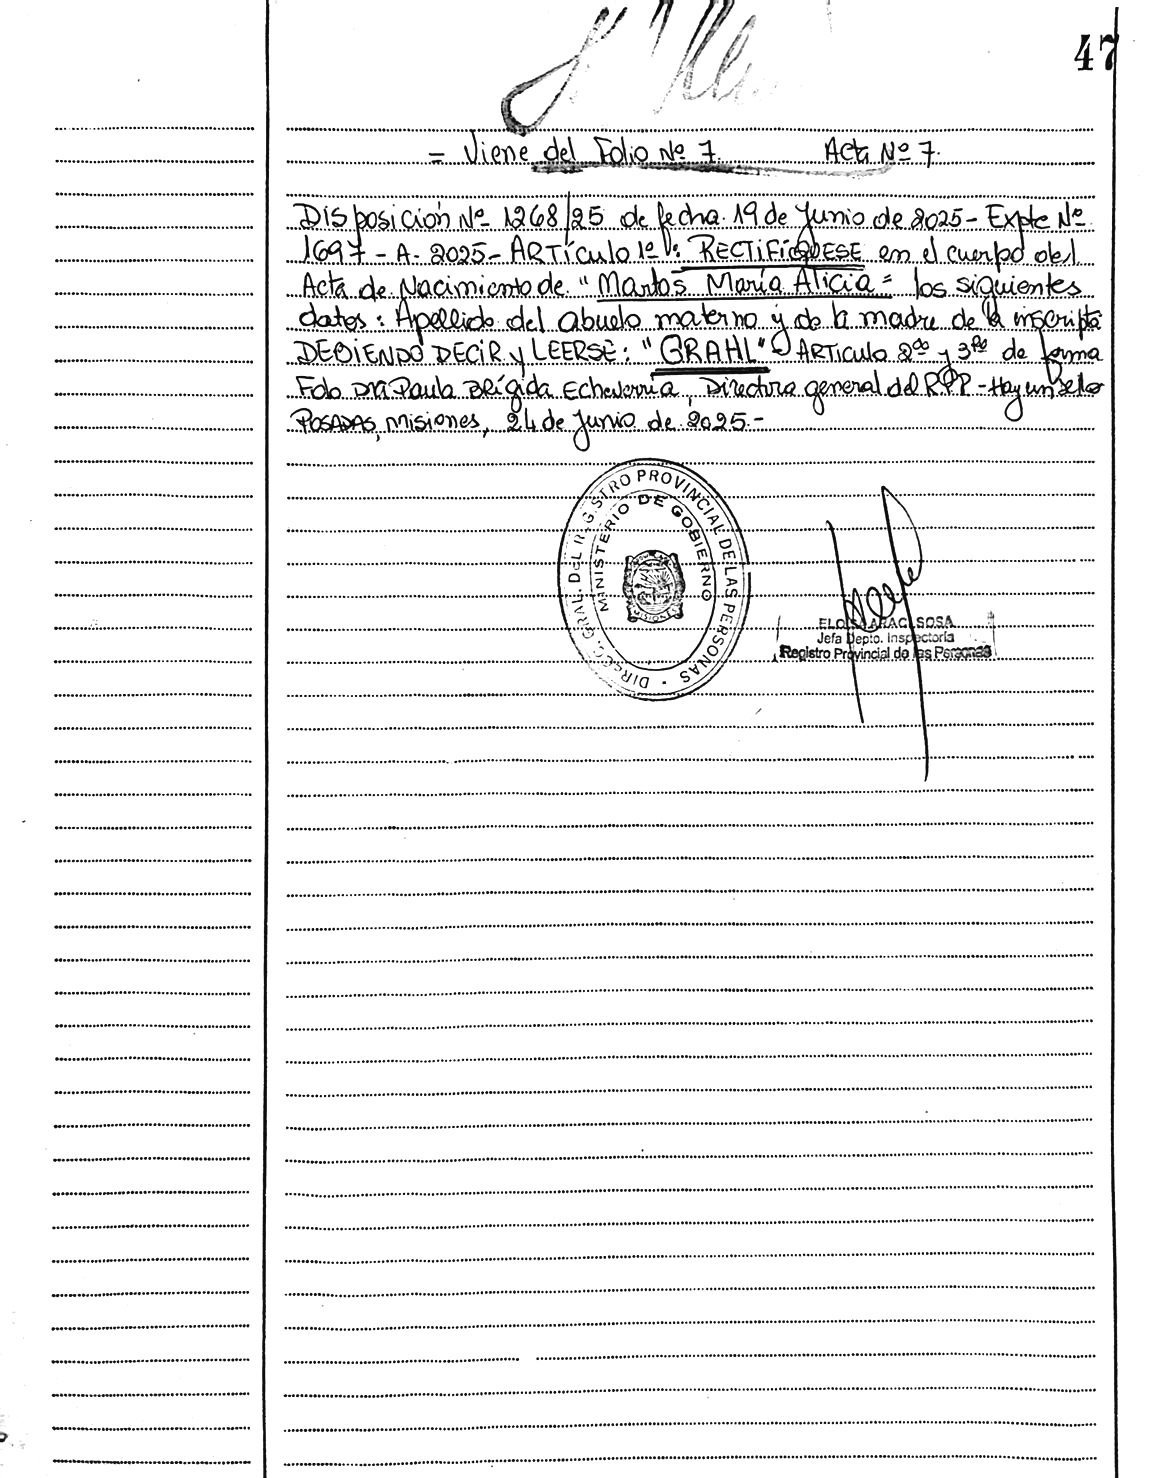 47
= Viene del Folio Nº 7. Acta Nº 7.
Disposición Nº 1268/25 de fecha 19 de Junio de 2025 - Expte Nº
1697 - A - 2025 - ARTÍCULO 1º: RECTIFÍQUESE en el cuerpo del
Acta de Nacimiento de "Martos María Alicia" los siguientes
datos: Apellido del abuelo materno y de la madre de la inscripta
DEBIENDO DECIR y LEERSE: "GRAHL" ARTICULO 2do y 3ro de forma
Fdo Dra Paula Brígida Echeverría, Directora general del RPP - Hay un sello
POSADAS, Misiones, 24 de Junio de 2025.-
DIRECC. GRAL. DEL REGISTRO PROVINCIAL DE LAS PERSONAS
MINISTERIO DE GOBIERNO
MISIONES
SOSA
Jefa Depto. Inspectoría
Registro Provincial de las Personas